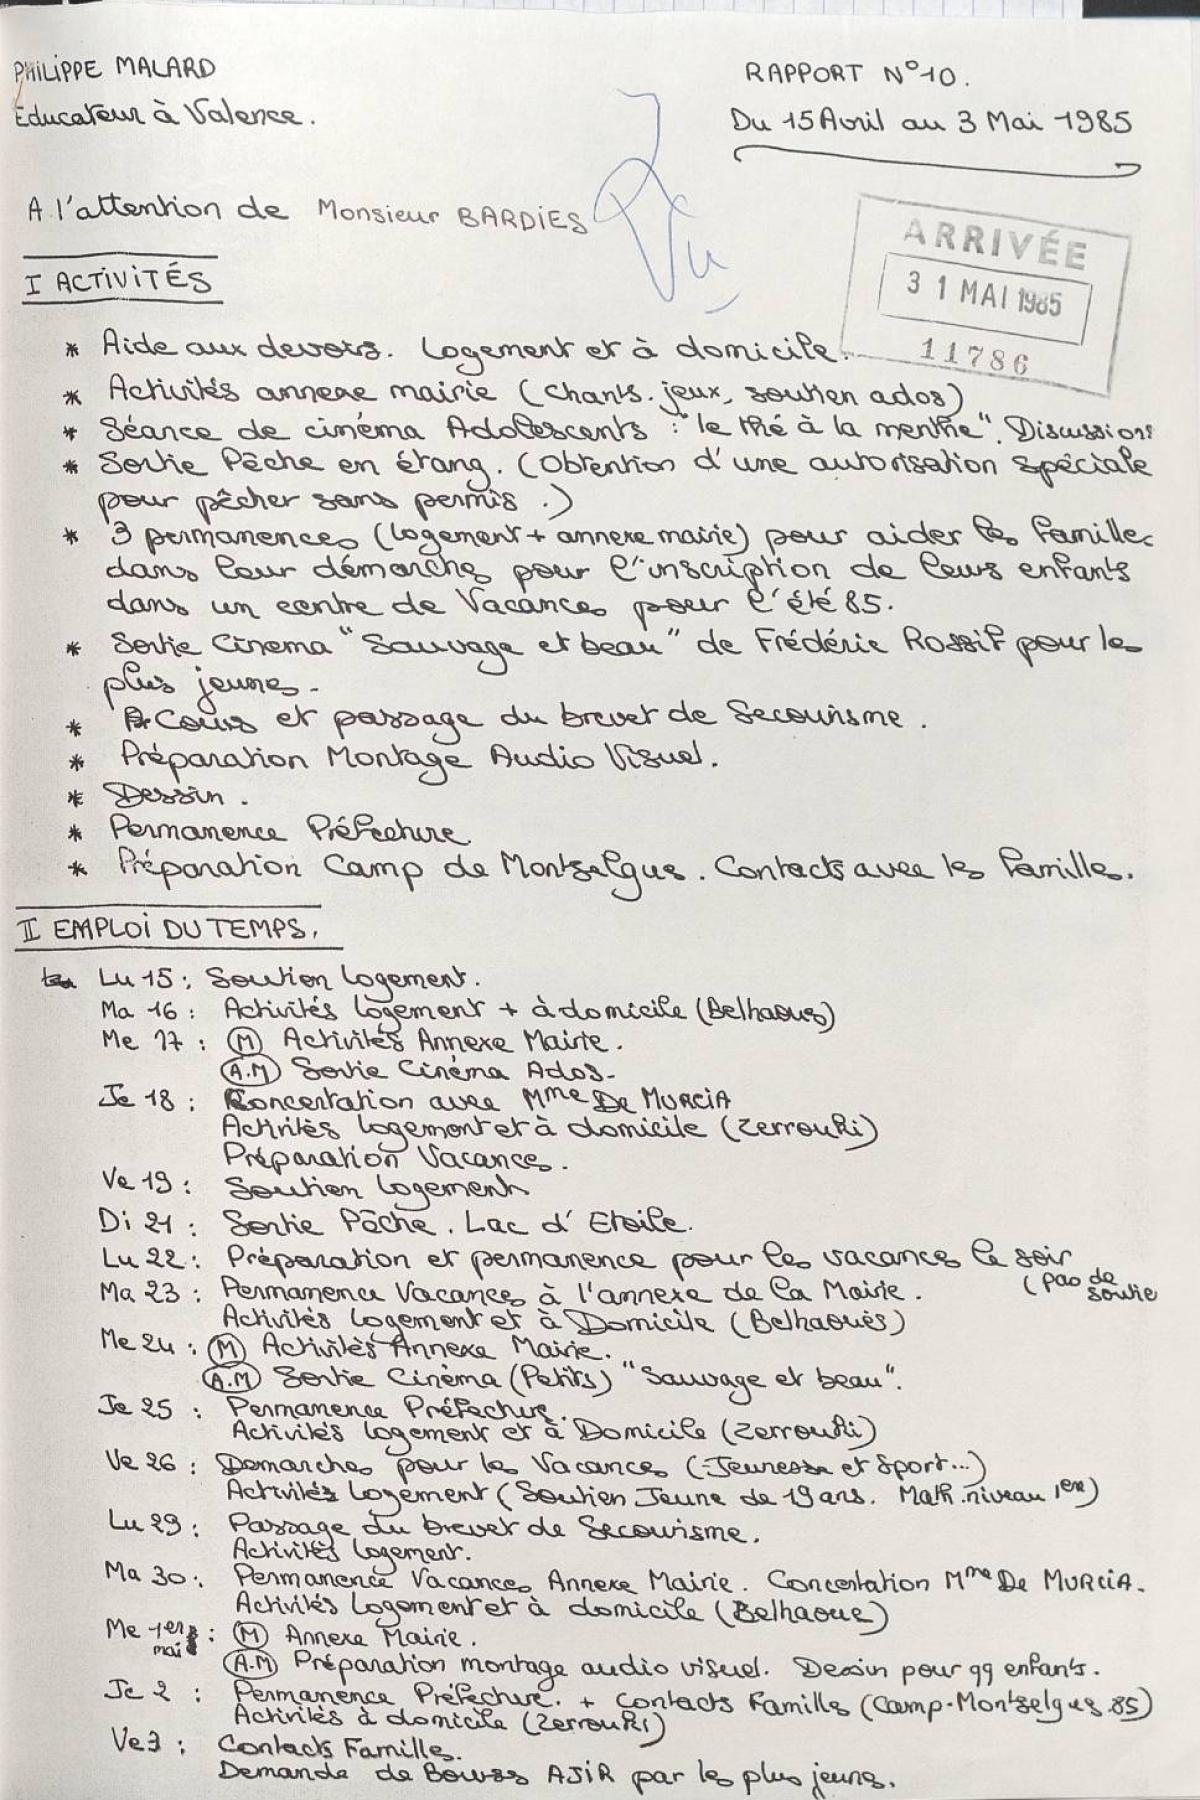 PHILIPPE MALARD
Educateur à Valence.
RAPPORT N°10.
Du 15 Avril au 3 Mai 1985
A l'attention de Monsieur BARDIES
Vu
ARRIVÉE
31 MAI 1985
11786
I ACTIVITÉS
* Aide aux devoirs. Logement et à domicile.
* Activités annexe mairie (chants. jeux, soutien ados)
* Séance de cinéma Adolescents : "le thé à la menthe". Discussions
* Sortie Pêche en étang. (Obtention d'une autorisation spéciale
pour pêcher sans permis.)
* 3 permanences (logement + annexe mairie) pour aider les familles
dans leur démarches pour l'inscription de leurs enfants
dans un centre de Vacances pour l'été 85.
* Sortie Cinema "Sauvage et beau" de Frédéric Rossif pour les
plus jeunes.
* Cours et passage du brevet de Secourisme.
* Préparation Montage Audio Visuel.
* Dessin.
* Permanence Préfecture.
* Préparation Camp de Montselgues. Contacts avec les familles.
II EMPLOI DU TEMPS.
Lu 15 : Soutien logement.
Ma 16 : Activités logement + à domicile (Belhaoues)
Me 17 : (M) Activités Annexe Mairie.
(A.M) Sortie Cinéma Ados.
Je 18 : Concertation avec Mme De MURCIA
Activités logement et à domicile (Zerrouki)
Préparation Vacances.
Ve 19 : Soutien logement
Di 21 : Sortie Pêche. Lac d'Etoile.
Lu 22 : Préparation et permanence pour les vacances le soir
(pas de soutien
Ma 23 : Permanence Vacances à l'annexe de la Mairie.
Activités logement et à Domicile (Belhaouès)
Me 24 : (M) Activités Annexe Mairie.
(A.M) Sortie Cinéma (Petits) "Sauvage et beau".
Je 25 : Permanence Préfecture.
Activités logement et à Domicile (Zerrouki)
Ve 26 : Demarches pour les Vacances (Jeunesse et Sport...)
Activités logement (Soutien Jeune de 19 ans. Math. niveau 1ere)
Lu 29 : Passage du brevet de Secourisme.
Activités logement.
Ma 30 : Permanence Vacances Annexe Mairie. Concertation Mme De MURCIA.
Activités Logement et à domicile (Belhaoue)
Me 1er mai : (M) Annexe Mairie.
(A.M) Préparation montage audio visuel. Dessin pour qq enfants.
Je 2 : Permanence Préfecture. + Contacts Familles (Camp-Montselgues.85)
Activités à domicile (Zerrouki)
Ve 3 : Contacts Familles.
Demande de Bourses AJIR par les plus jeunes.